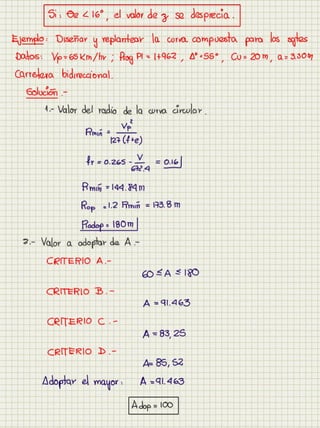 Si: θe < 16°, el valor de z se desprecia.
Ejemplo: Diseñar y replantear la curva compuesta para los sgtes
Datos: Vp=65 Km/hr; Prog PI = 1+962, Δ°=56°, Cu = 20 m, a=3.50m
Carretera bidireccional.
Solución.-
1.- Valor del radio de la curva circular.
Rmín = Vp² / 127(f+e)
fr = 0.265 - V/602.4 = 0.16
Rmín = 144.84 m
Rop = 1.2 Rmín = 173.8 m
Radop = 180 m
2.- Valor a adoptar de A.-
CRITERIO A.-
60 ≤ A ≤ 180
CRITERIO B.-
A = 91.463
CRITERIO C.-
A = 83,25
CRITERIO D.-
A= 85,52
Adoptar el mayor: A = 91.463
Adop = 100